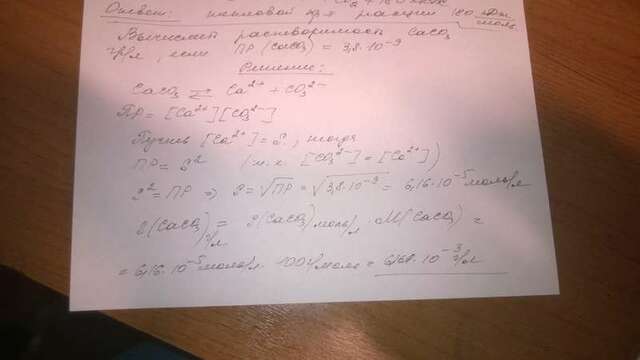 Ответ: тепловой эф. реакции 180 кДж/моль
Вычислить растворимость CaCO₃
г/л, если ПР(CaCO₃) = 3,8·10⁻⁹
Решение:
CaCO₃ ⇄ Ca²⁺ + CO₃²⁻
ПР = [Ca²⁺][CO₃²⁻]
Пусть [Ca²⁺] = S, тогда
ПР = S² (т.к. [CO₃²⁻] = [Ca²⁺])
S² = ПР ⇒ S = √ПР = √3,8·10⁻⁹ = 6,16·10⁻⁵ моль/л
S(CaCO₃) г/л = S(CaCO₃) моль/л · M(CaCO₃) =
= 6,16·10⁻⁵ моль/л · 100 г/моль = 6,16·10⁻³ г/л